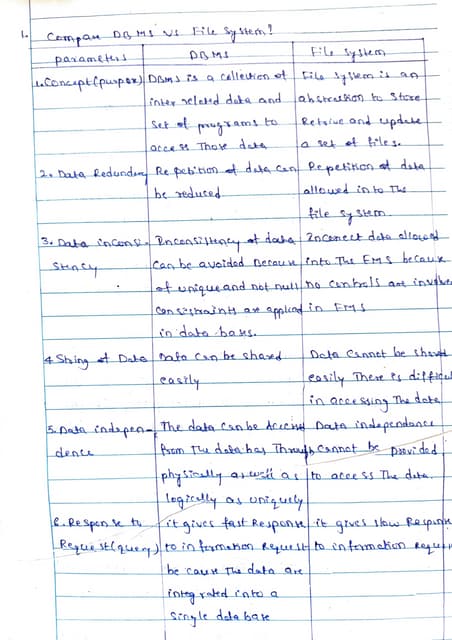 1. Compare DBMS VS File System?
parameters DBMS File System
1. Concept (purpose) DBMS is a collection of File System is an
inter related data and abstraction to store
Set of programs to Retrive and update
access Those data a set of files.
2. Data Redundency Repetition of data can Repetition of data
be reduced allowed in to The
file system
3. Data inconsi- Inconsistency of data Incorrect data allowed
stency can be avoided Because into The FMS because
of unique and not null no controls are involve
constraints are applied in FMS
in data bases.
4. Sharing of Data Data can be shared Data Cannot be shared
easily easily There is difficul
in accessing The data
5. Data indepen- The data can be Access Data independance
dence From The data bas Through Cannot be provided
physically as well as to access The data.
logically as uniquely
6. Response to it gives fast Response it gives slow Response
Request (query) to information Request to information Reques
be cause The data are
integrated into a
single data base